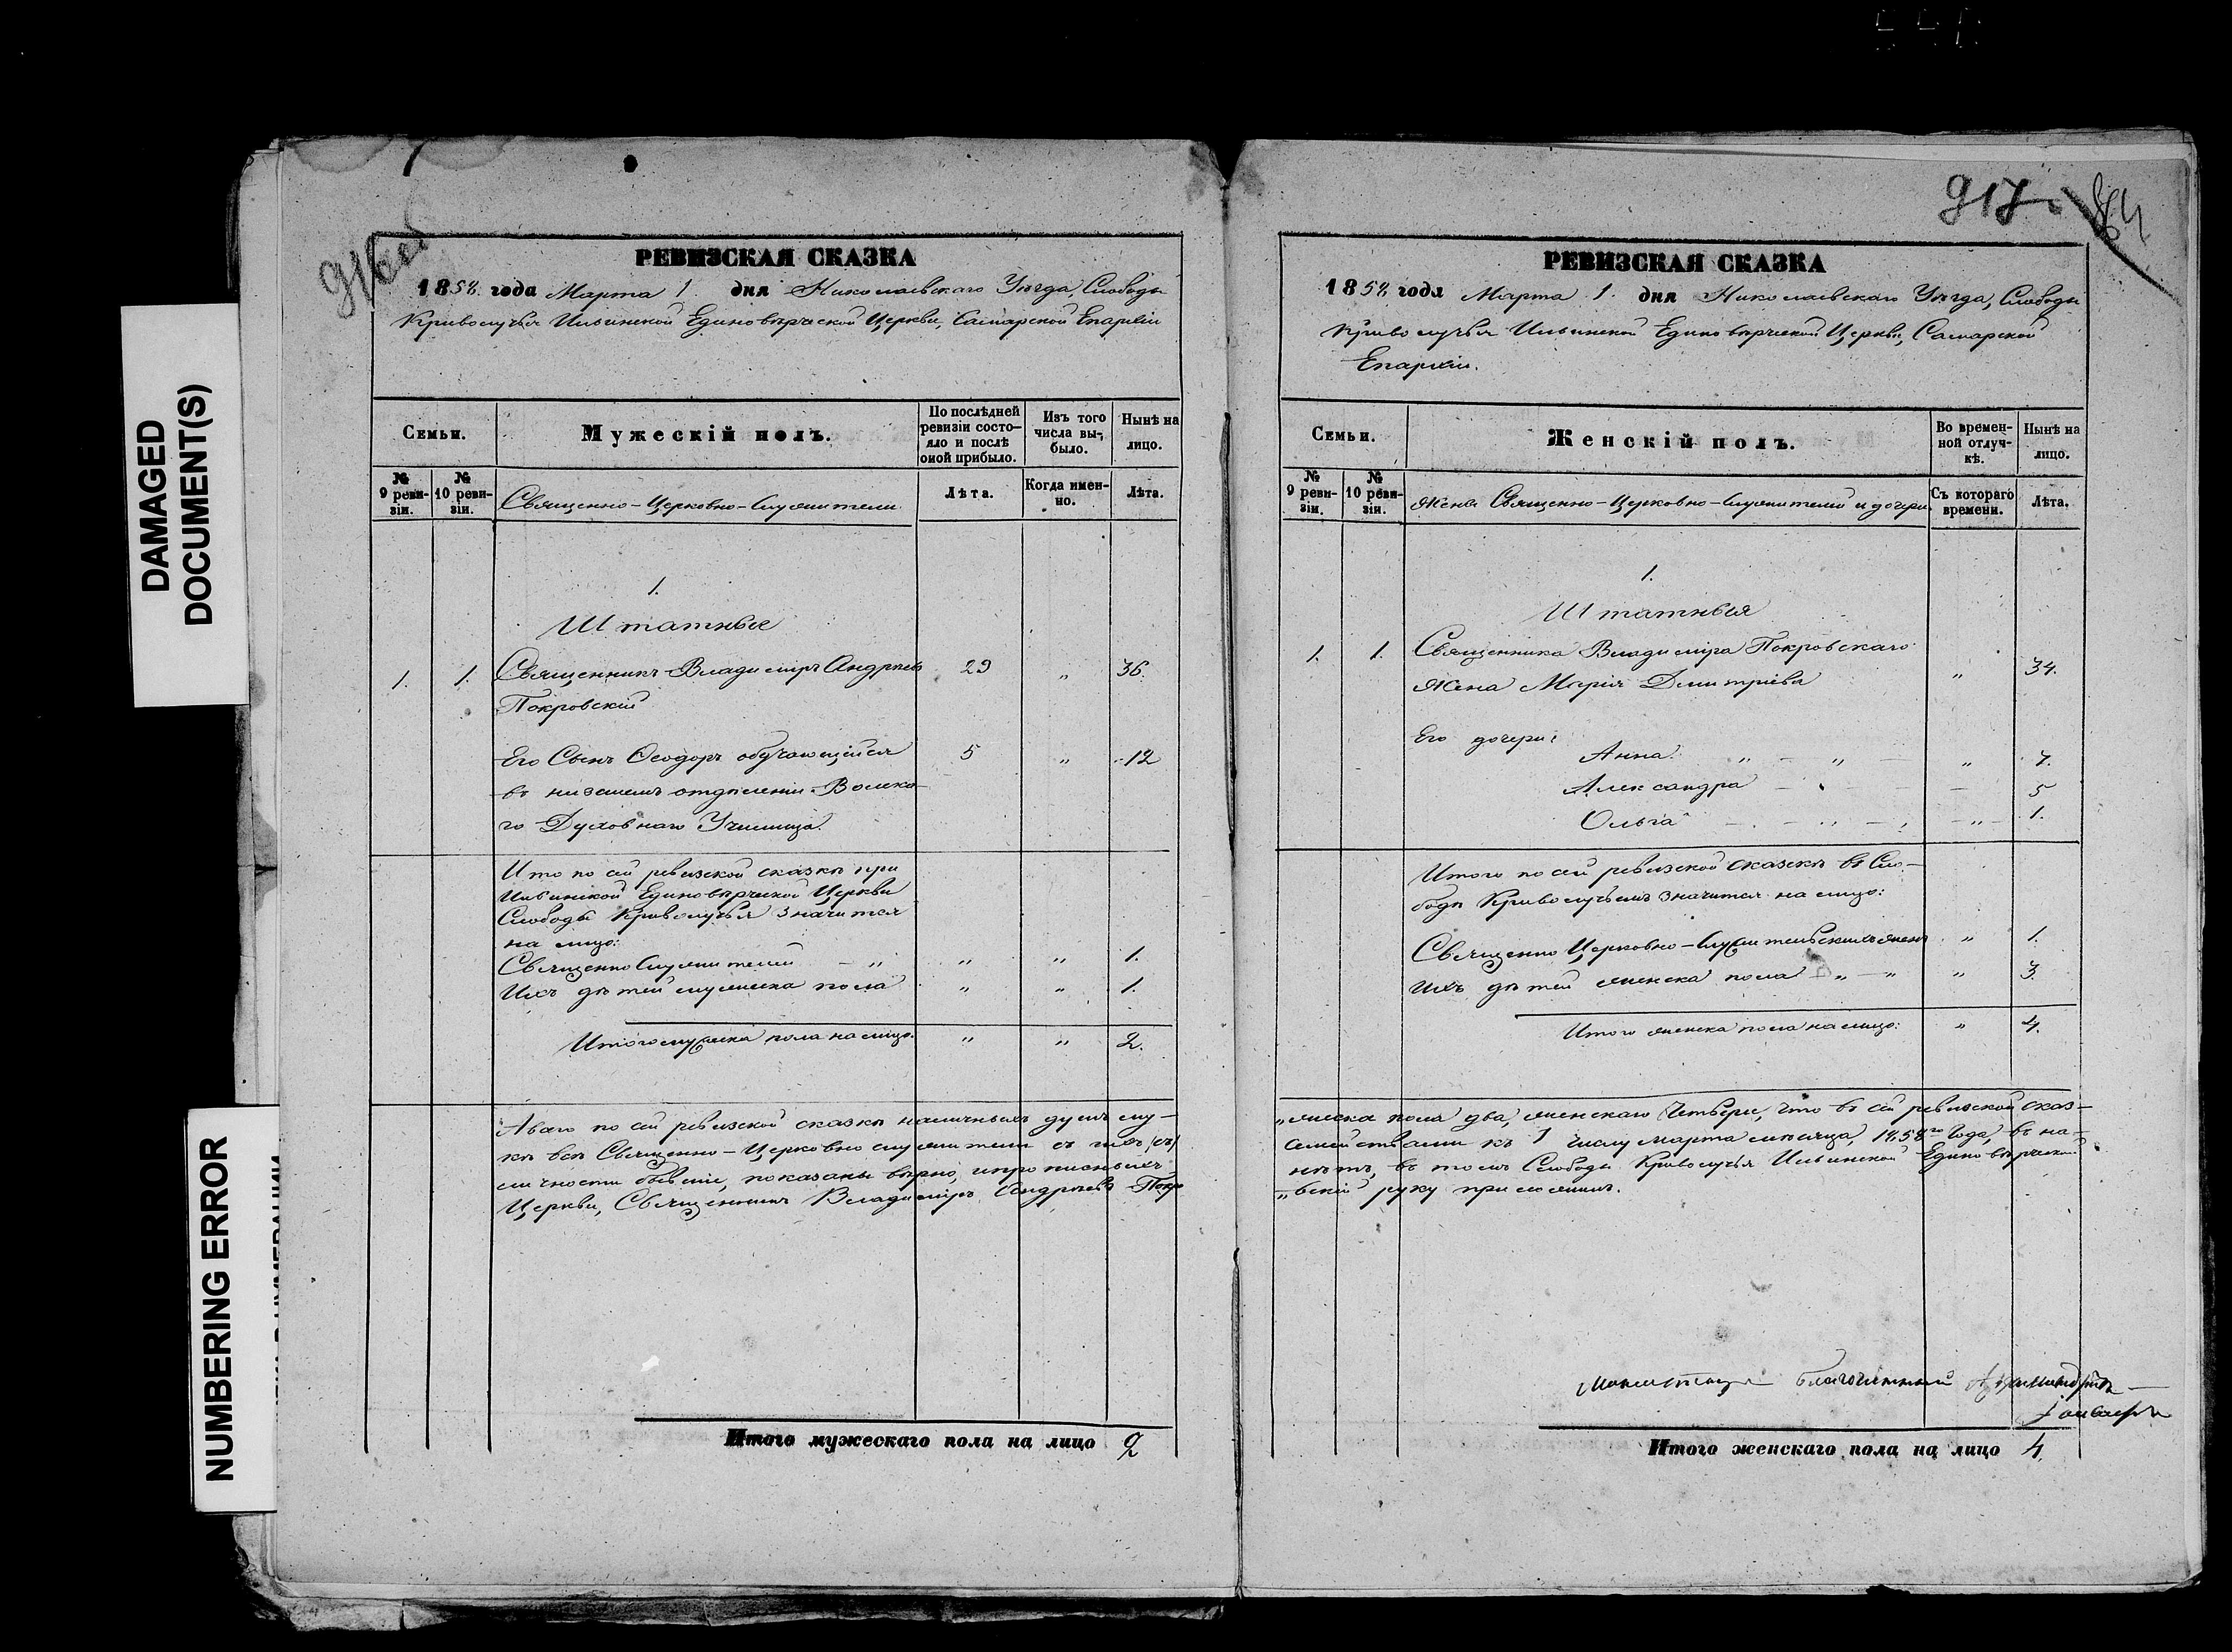 DAMAGED
DOCUMENT(S)
NUMBERING ERROR
916
РЕВИЗСКАЯ СКАЗКА
1858 года Марта 1. дня Николаевскаго Уѣзда, Слободы
Криволучья Ильинской Единовѣрческой Церкви, Самарской Епархіи
Семьи.
Мужескій полъ.
По послѣдней ревизіи состояло и послѣ оной прибыло.
Изъ того числа выбыло.
Нынѣ на лицо.
№ 9 ревизіи.
№ 10 ревизіи.
Священно-Церковно-Служители
Лѣта.
Когда именно.
Лѣта.
1.
Штатные
1. 1. Священникъ Владиміръ Андреевъ 29 „ 36.
Покровскій
Его Сынъ Ѳеодоръ обучающійся 5 „ 12
въ низшемъ отдѣленіи Вольска-
го Духовнаго Училища.
Итого по сей ревизской сказкѣ при
Ильинской Единовѣрческой Церкви
Слободы Криволучья значится
на лицо:
Священнослужителей – „ „ „ 1.
Ихъ дѣтей мужеска пола „ „ 1.
Итого мужеска пола на лицо. „ „ 2.
А всего по сей ревизской сказкѣ наличныхъ душъ му-
кѣ всѣ Священно-Церковно служители съ ихъ
личности бывшіе, показаны вѣрно,
Церкви, Священникъ Владиміръ Андреевъ Покро
Итого мужескаго пола на лицо 2
917. 84
РЕВИЗСКАЯ СКАЗКА
1858 года Марта 1. дня Николаевскаго Уѣзда, Слободы
Криволучья Ильинской Единовѣрческой Церкви, Самарской
Епархіи.
Семьи.
Женскій полъ.
Во временной отлучкѣ.
Нынѣ на лицо.
№ 9 ревизіи.
№ 10 ревизіи.
Жены Священно-Церковно-Служителей и дочери.
Съ котораго времени.
Лѣта.
1.
Штатныя
1. 1. Священника Владиміра Покровскаго
Жена Марія Дмитріева „ 34.
Его дочери:
Анна „ – „ – „ 7.
Александра – „ – – 5
Ольга – „ – „ – 1.
Итого по сей ревизской сказкѣ въ Сло-
бодѣ Криволучьемъ значится на лицо:
Священно Церковно-Служительскихъ женъ „ 1.
Ихъ дѣтей женска пола „ – „ „ 3.
Итого женска пола на лицо: „ 4.
„жеска пола два, женскаго Четыре, что въ сей ревизской сказ-
семействами къ 1 числу Марта мѣсяца, 1858го Года, въ на-
нѣтъ, въ томъ Слободы Криволучья Ильинской Единовѣрческой
„вскій руку приложилъ.
благочинный
Итого женскаго пола на лицо 4.